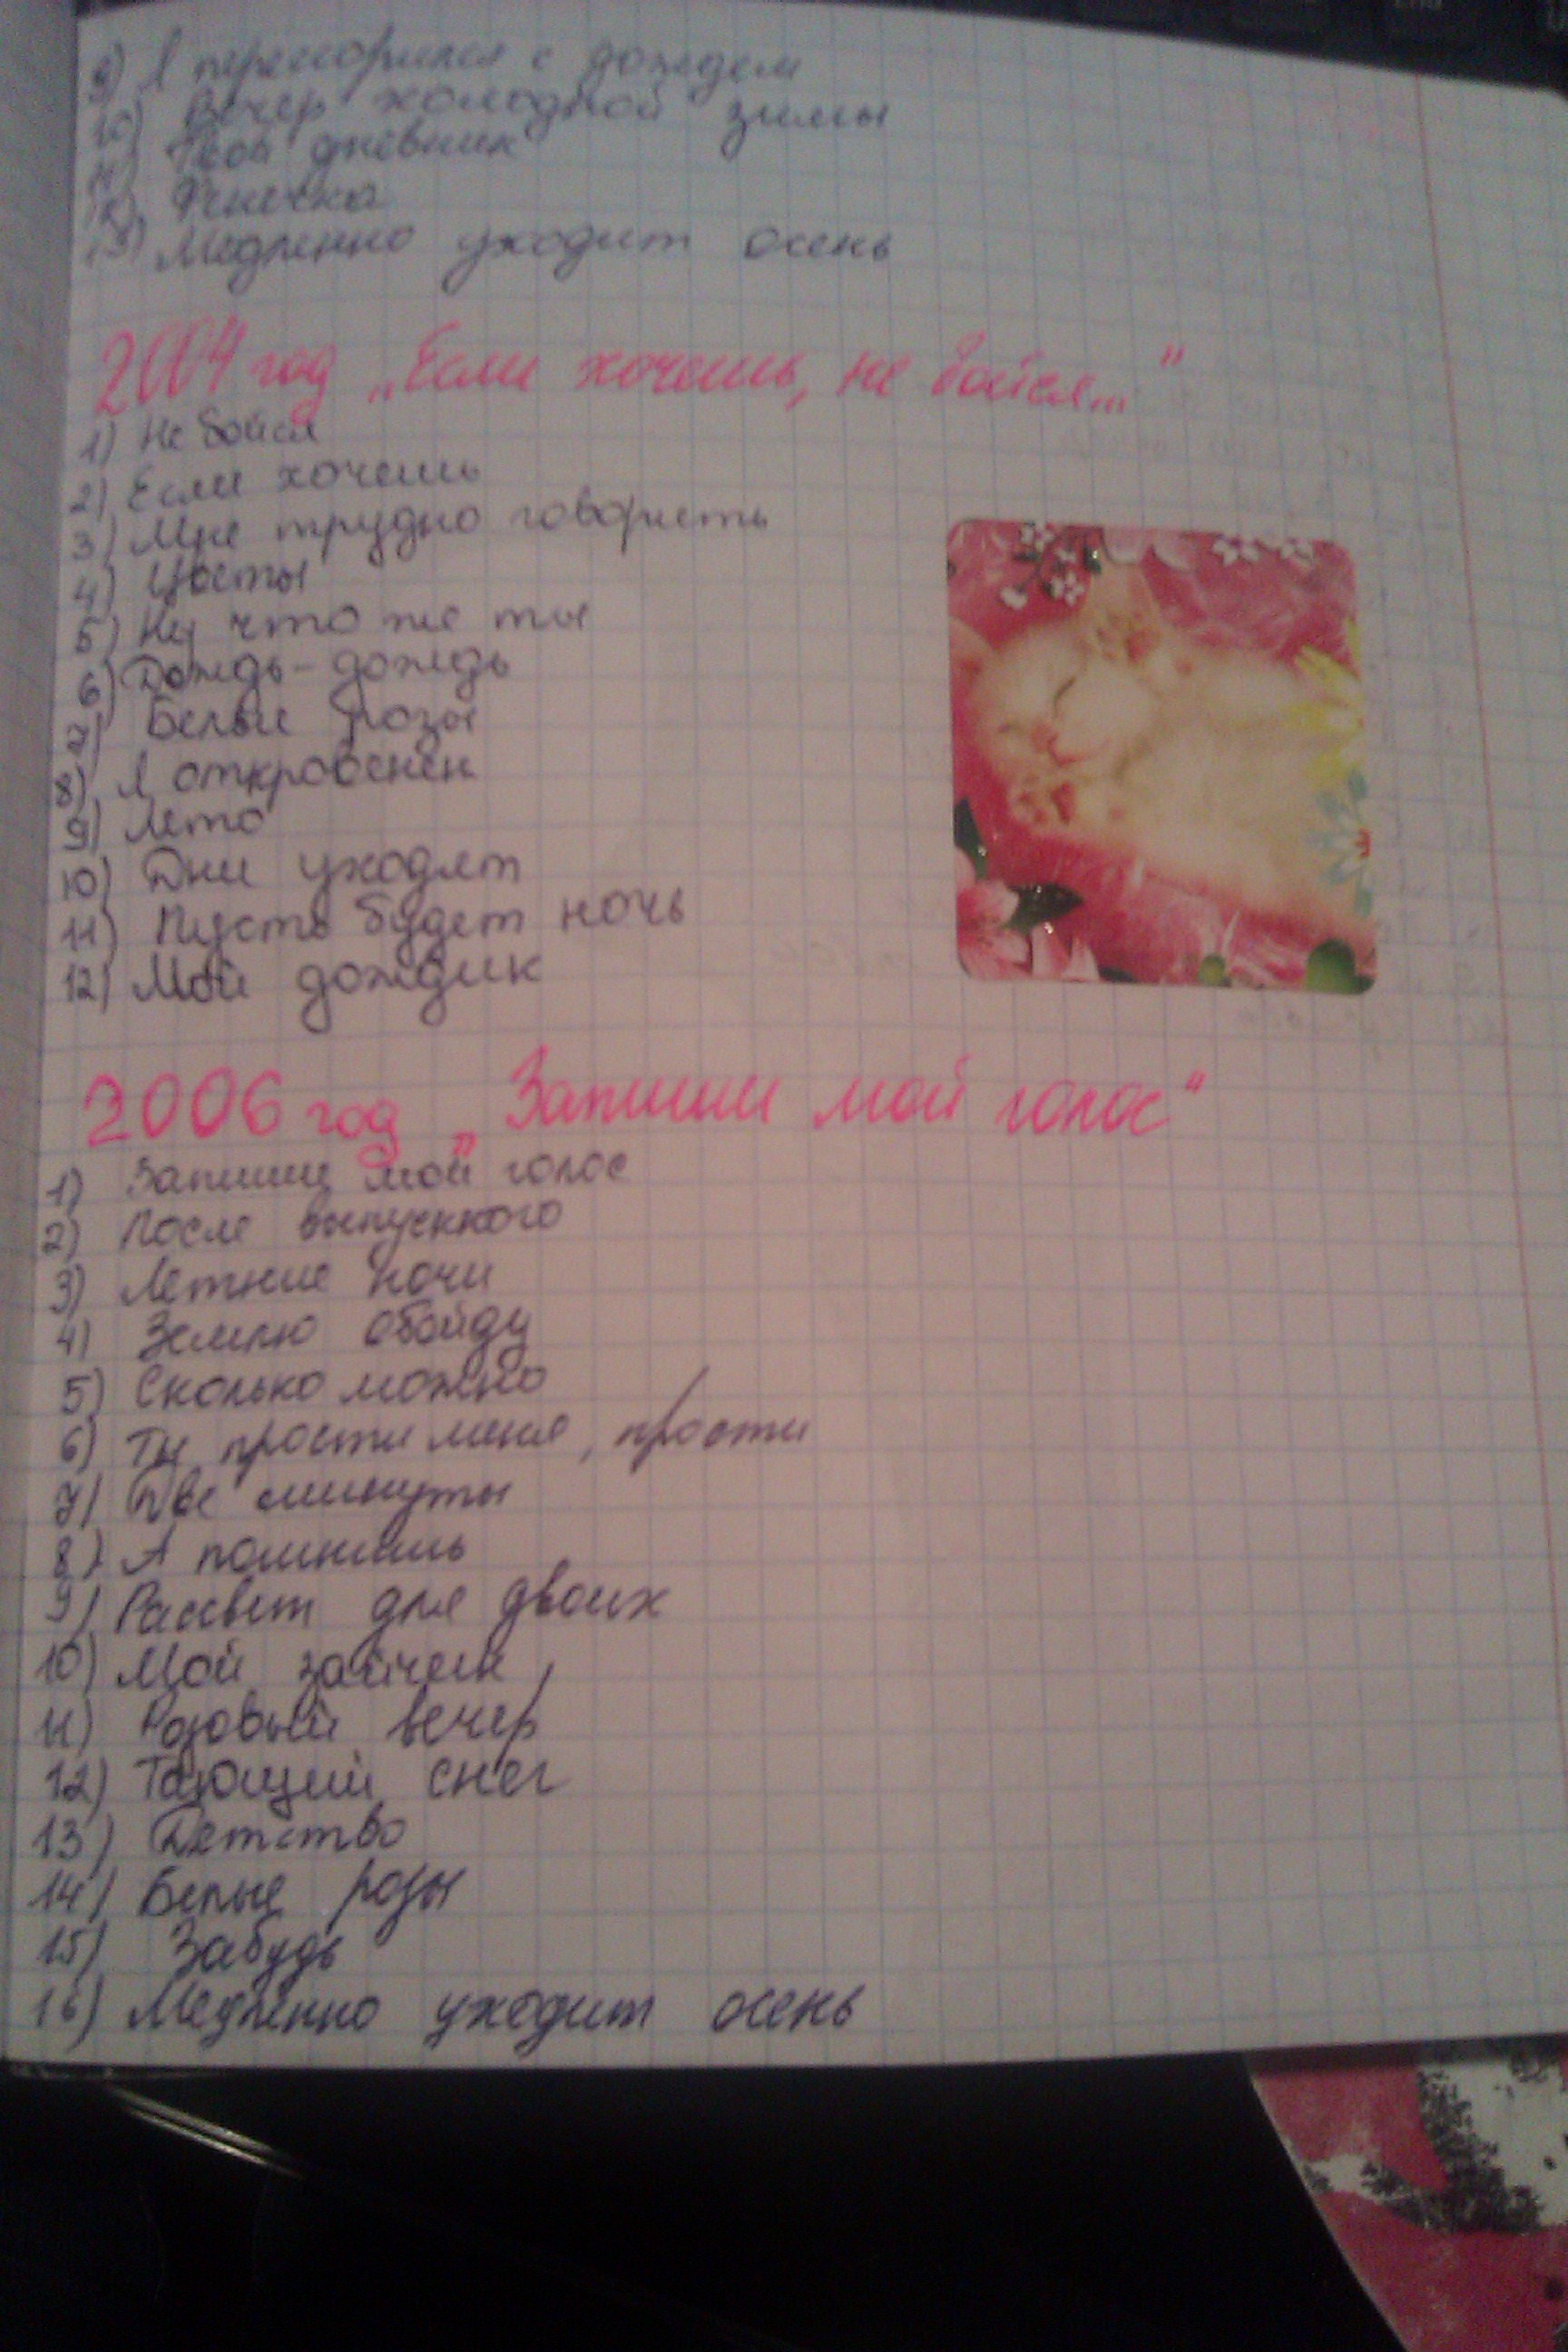 9) Я перессорился с дождем
10) Вечер холодной зимы
11) Твой дневник
12) Фенечка
13) Медленно уходит осень
2004 год „Если хочешь, не бойся..."
1) Не бойся
2) Если хочешь
3) Мне трудно говорить
4) Цветы
5) Ну что же ты
6) Дождь-дождь
7) Белые розы
8) Я откровенен
9) Лето
10) Дни уходят
11) Пусть будет ночь
12) Мой дождик
2006 год „Запиши мой голос"
1) Запиши мой голос
2) После выпускного
3) Летние ночи
4) Землю обойду
5) Сколько можно
6) Ты прости меня, прости
7) Две минуты
8) А помнишь
9) Рассвет для двоих
10) Мой зайчик
11) Розовый вечер
12) Тающий снег
13) Детство
14) Белые розы
15) Забудь
16) Медленно уходит осень